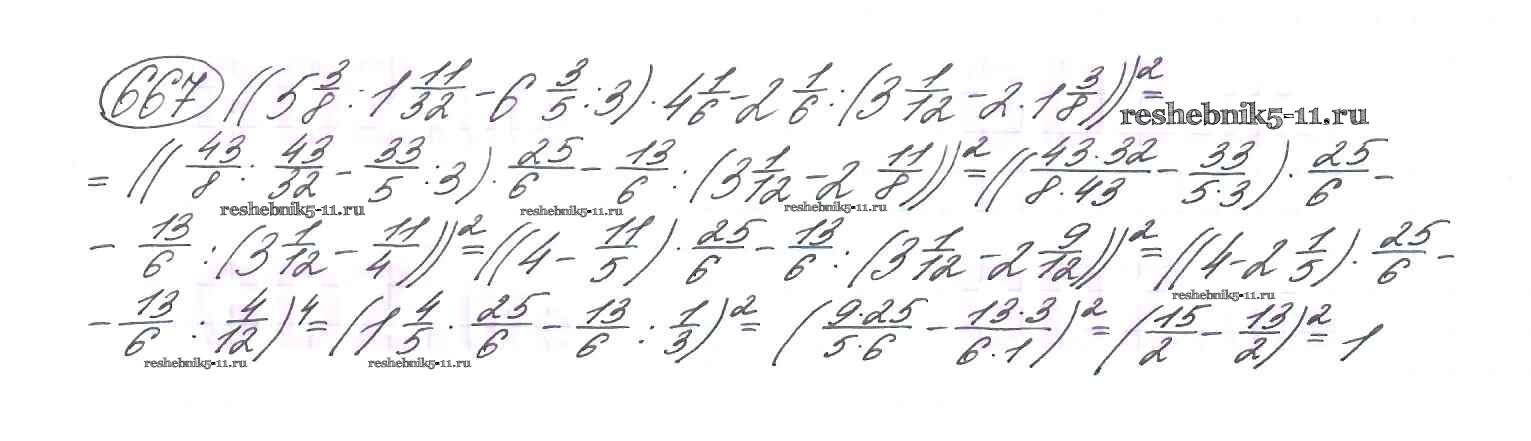 667 ((5 3/8 : 1 11/32 - 6 3/5 : 3) · 4 1/6 - 2 1/6 : (3 1/12 - 2 · 1 3/8))² =
reshebnik5-11.ru
= ((43/8 : 43/32 - 33/5 : 3) · 25/6 - 13/6 : (3 1/12 - 2 11/8))² = ((43·32/8·43 - 33/5·3) · 25/6 -
reshebnik5-11.ru reshebnik5-11.ru reshebnik5-11.ru
- 13/6 : (3 1/12 - 11/4))² = ((4 - 11/5) · 25/6 - 13/6 : (3 1/12 - 2 9/12))² = ((4 - 2 1/5) · 25/6 -
reshebnik5-11.ru
- 13/6 : 4/12)⁴ = (1 4/5 · 25/6 - 13/6 : 1/3)² = (9·25/5·6 - 13·3/6·1)² = (15/2 - 13/2)² = 1
reshebnik5-11.ru reshebnik5-11.ru